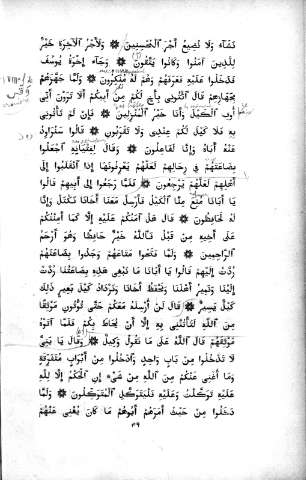 نَشَآءُ وَلَا نُضِيعُ أَجْرَ ٱلْمُحْسِنِينَ ۞ وَلَأَجْرُ ٱلْآخِرَةِ خَيْرٌ
لِلَّذِينَ آمَنُوا وَكَانُوا يَتَّقُونَ ۞ وَجَآءَ إِخْوَةُ يُوسُفَ
فَدَخَلُوا عَلَيْهِ فَعَرَفَهُمْ وَهُمْ لَهُ مُنْكِرُونَ ۞ وَلَمَّا جَهَّزَهُمْ
بِجَهَازِهِمْ قَالَ ٱئْتُونِي بِأَخٍ لَكُمْ مِنْ أَبِيكُمْ أَلَا تَرَوْنَ أَنِّي
أُوفِ ٱلْكَيْلَ وَأَنَا خَيْرُ ٱلْمُنْزِلِينَ ۞ فَإِنْ لَمْ تَأْتُونِي
بِهِ فَلَا كَيْلَ لَكُمْ عِنْدِي وَلَا تَقْرَبُونِ ۞ قَالُوا سَنُرَاوِدُ
عَنْهُ أَبَاهُ وَإِنَّا لَفَاعِلُونَ ۞ وَقَالَ لِفِتْيَانِهِ ٱجْعَلُوا
بِضَاعَتَهُمْ فِي رِحَالِهِمْ لَعَلَّهُمْ يَعْرِفُونَهَا إِذَا ٱنْقَلَبُوا إِلَى
أَهْلِهِمْ لَعَلَّهُمْ يَرْجِعُونَ ۞ فَلَمَّا رَجَعُوا إِلَى أَبِيهِمْ قَالُوا
يَا أَبَانَا مُنِعَ مِنَّا ٱلْكَيْلُ فَأَرْسِلْ مَعَنَا أَخَانَا نَكْتَلْ وَإِنَّا
لَهُ لَحَافِظُونَ ۞ قَالَ هَلْ آمَنُكُمْ عَلَيْهِ إِلَّا كَمَا أَمِنْتُكُمْ
عَلَى أَخِيهِ مِنْ قَبْلُ فَٱللَّهُ خَيْرٌ حَافِظًا وَهُوَ أَرْحَمُ
ٱلرَّاحِمِينَ ۞ وَلَمَّا فَتَحُوا مَتَاعَهُمْ وَجَدُوا بِضَاعَتَهُمْ
رُدَّتْ إِلَيْهِمْ قَالُوا يَا أَبَانَا مَا نَبْغِي هَذِهِ بِضَاعَتُنَا رُدَّتْ
إِلَيْنَا وَنَمِيرُ أَهْلَنَا وَنَحْفَظُ أَخَانَا وَنَزْدَادُ كَيْلَ بَعِيرٍ ذَلِكَ
كَيْلٌ يَسِيرٌ ۞ قَالَ لَنْ أُرْسِلَهُ مَعَكُمْ حَتَّى تُؤْتُونِ مَوْثِقًا
مِنَ ٱللَّهِ لَتَأْتُنَّنِي بِهِ إِلَّا أَنْ يُحَاطَ بِكُمْ فَلَمَّا آتَوْهُ
مَوْثِقَهُمْ قَالَ ٱللَّهُ عَلَى مَا نَقُولُ وَكِيلٌ ۞ وَقَالَ يَا بَنِيَّ
لَا تَدْخُلُوا مِنْ بَابٍ وَاحِدٍ وَٱدْخُلُوا مِنْ أَبْوَابٍ مُتَفَرِّقَةٍ
وَمَا أُغْنِي عَنْكُمْ مِنَ ٱللَّهِ مِنْ شَيْءٍ إِنِ ٱلْحُكْمُ إِلَّا لِلَّهِ
عَلَيْهِ تَوَكَّلْتُ وَعَلَيْهِ فَلْيَتَوَكَّلِ ٱلْمُتَوَكِّلُونَ ۞ وَلَمَّا
دَخَلُوا مِنْ حَيْثُ أَمَرَهُمْ أَبُوهُمْ مَا كَانَ يُغْنِي عَنْهُمْ
٣٩